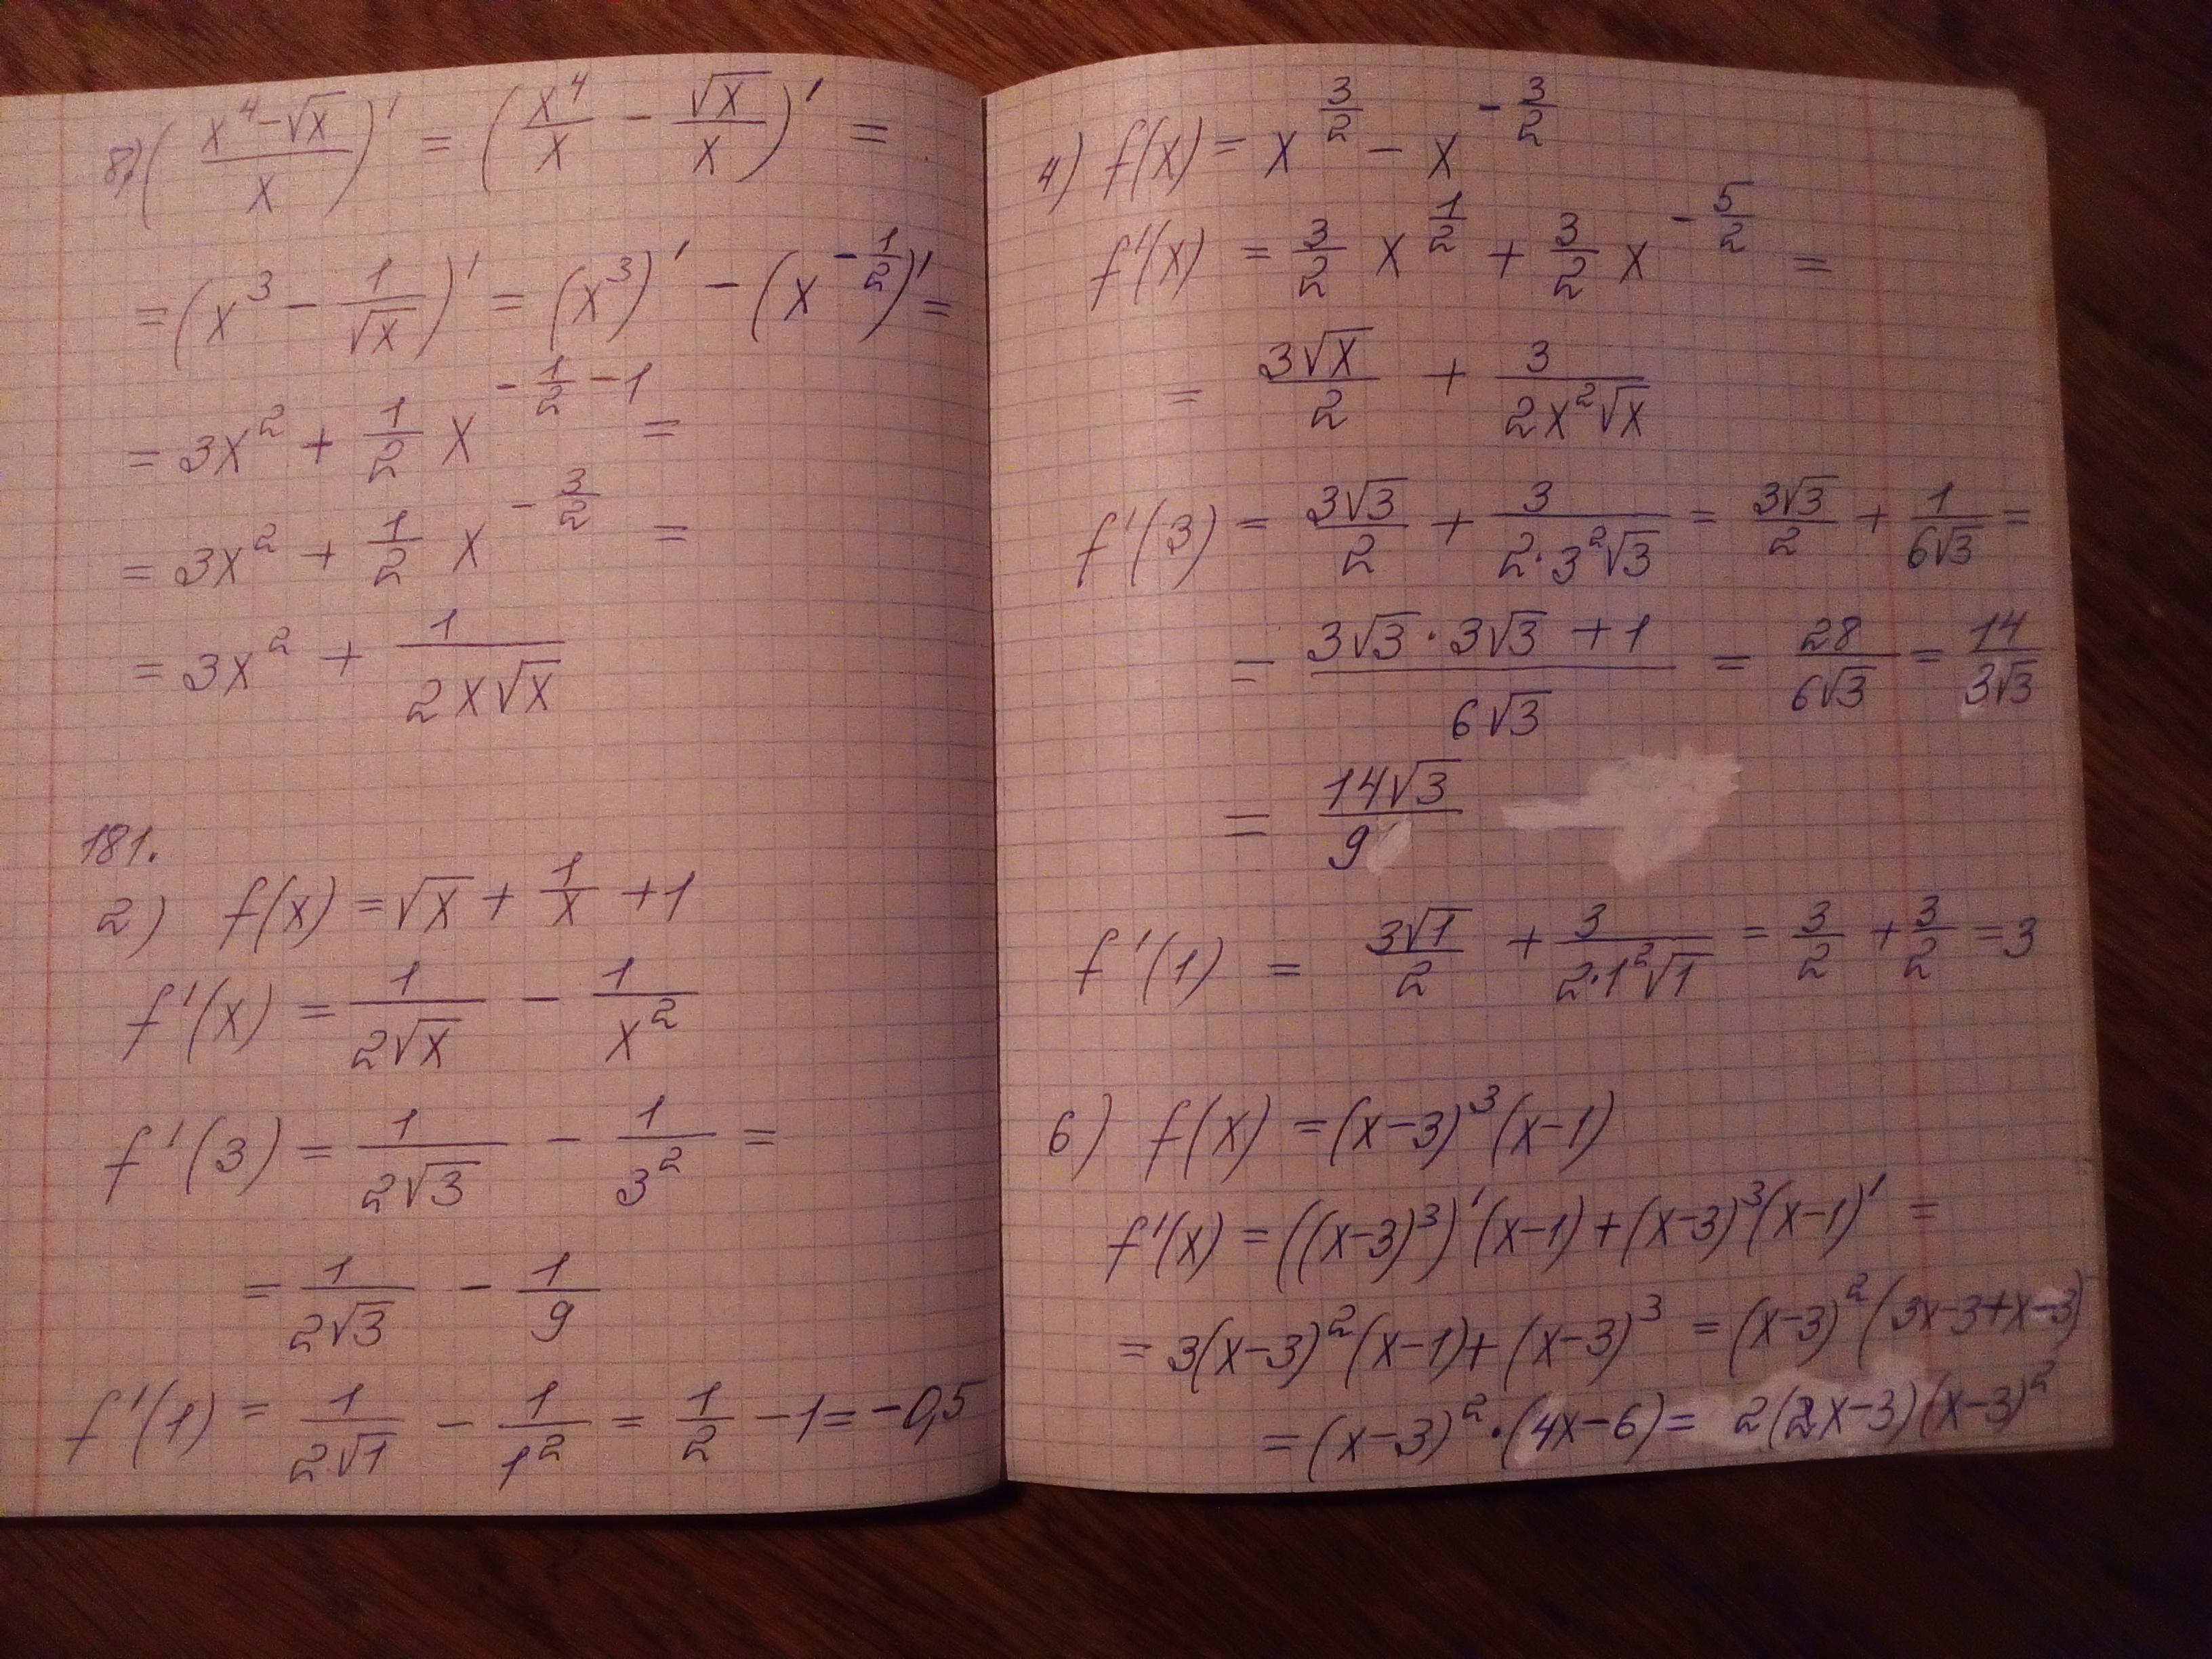 8) ( (x⁴-√x)/x )' = ( x⁴/x - √x/x )' =
= ( x³ - 1/√x )' = (x³)' - (x^(-1/2))' =
= 3x² + 1/2 x^(-1/2 - 1) =
= 3x² + 1/2 x^(-3/2) =
= 3x² + 1/(2x√x)
181.
2) f(x) = √x + 1/x + 1
f'(x) = 1/(2√x) - 1/x²
f'(3) = 1/(2√3) - 1/3² =
= 1/(2√3) - 1/9
f'(1) = 1/(2√1) - 1/1² = 1/2 - 1 = -0,5
4) f(x) = x^(3/2) - x^(-3/2)
f'(x) = 3/2 x^(1/2) + 3/2 x^(-5/2) =
= 3√x/2 + 3/(2x²√x)
f'(3) = 3√3/2 + 3/(2·3²√3) = 3√3/2 + 1/(6√3) =
= (3√3·3√3 + 1)/(6√3) = 28/(6√3) = 14/(3√3)
= 14√3/9
f'(1) = 3√1/2 + 3/(2·1²√1) = 3/2 + 3/2 = 3
6) f(x) = (x-3)³(x-1)
f'(x) = ((x-3)³)'(x-1) + (x-3)³(x-1)' =
= 3(x-3)²(x-1) + (x-3)³ = (x-3)²(3x-3+x-3)
= (x-3)²·(4x-6) = 2(2x-3)(x-3)²